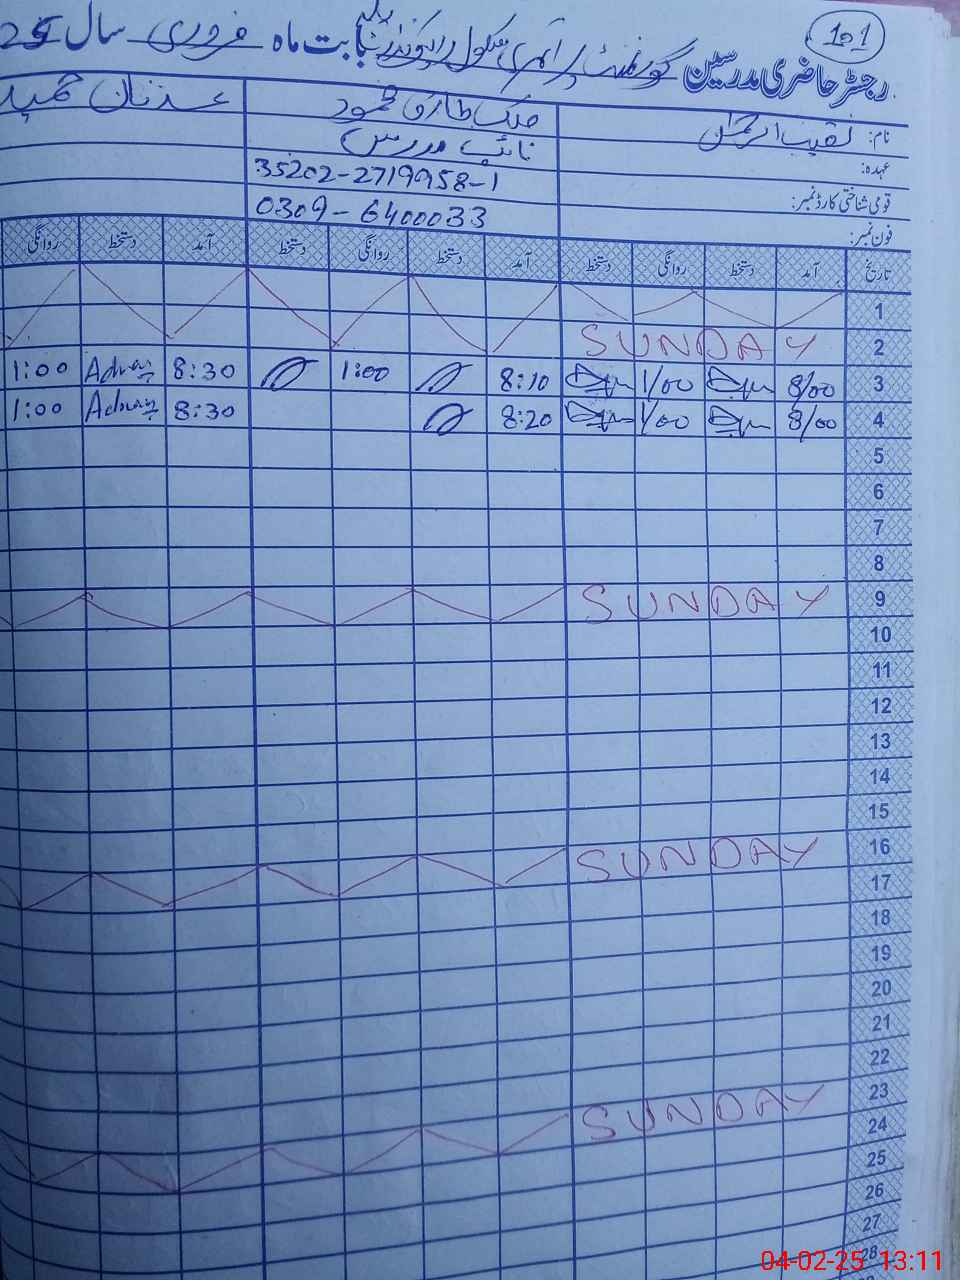 101
رجسٹر حاضری مدرسین گورنمنٹ پرائمری سکول بابت ماہ فروری سال 25
نام: نقیب الرحمٰن ملک طارق محمود عدنان حمید
عہدہ: نائب مدرس
قومی شناختی کارڈ نمبر: 35202-2719958-1
فون نمبر: 0309-6400033
تاریخ آمد دستخط روانگی دستخط آمد دستخط روانگی دستخط آمد دستخط روانگی
1
2 SUNDAY
3 8/00 1/00 8:10 1:00 8:30 Adnan 1:00
4 8/00 1/00 8:20 8:30 Adnan 1:00
5
6
7
8
9 SUNDAY
10
11
12
13
14
15
16 SUNDAY
17
18
19
20
21
22
23 SUNDAY
24
25
26
27
28
04-02-25 13:11